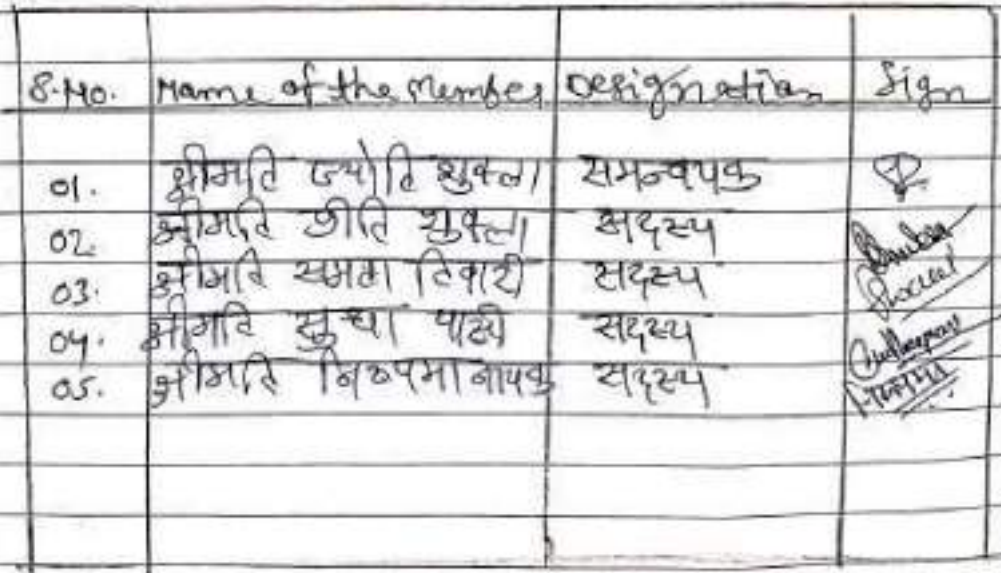 S.No. Name of the Member Designation Sign
01. श्रीमति ज्योति शुक्ला समन्वयक
02. श्रीमति प्रीति शुक्ला सदस्य
03. श्रीमति ममता तिवारी सदस्य
04. श्रीमति सुधा पाठी सदस्य
05. श्रीमति निरुपमा नायक सदस्य निरुपमा